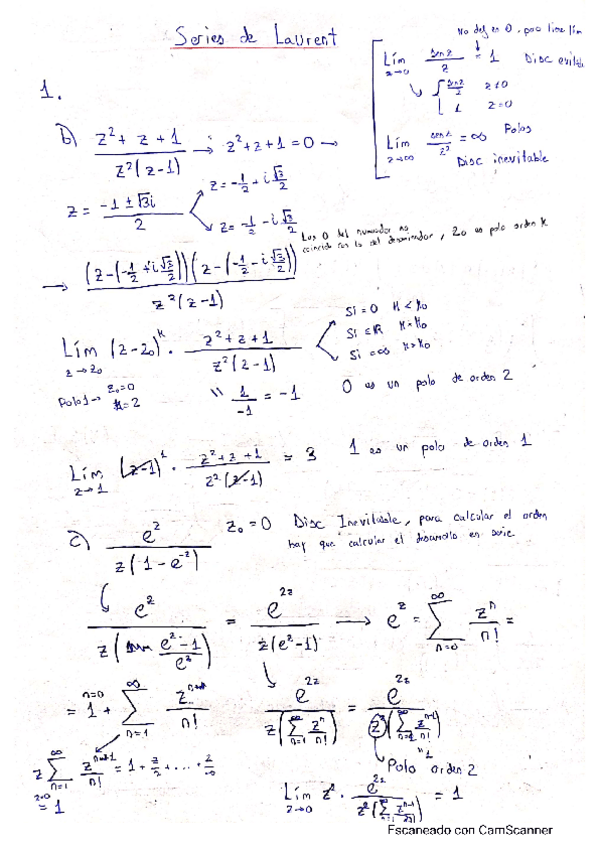 Series de Laurent
No def en 0, pero tiene lím
Lím z→0 sen z / z = 1 Disc evitable
{ sen z / z z≠0
1 z=0
Lím z→∞ sen z / z² = ∞ Polos
Disc inevitable
1.
b) z² + z + 1 / z²(z-1) → z² + z + 1 = 0 →
z = -1 ± √3i / 2
z = -1/2 + i √3/2
z = -1/2 - i √3/2
Los 0 del numerador no
coincide con la del denominador, Zo es polo orden K
→ (z-(-1/2 + i√3/2))(z-(-1/2 - i√3/2)) / z²(z-1)
Lím z→z₀ (z-z₀)^k · z² + z + 1 / z²(z-1)
Si = 0 K < K₀
Si ∈ℝ K = K₀
Si = ∞ K > K₀
Polo 1 → z₀=0
K=2
1 / -1 = -1
0 es un polo de orden 2
Lím z→1 (z-1)¹ · z² + z + 1 / z²(z-1) = 3 1 es un polo de orden 1
c) e^z / z(1 - e^-z) z₀ = 0 Disc Inevitable, para calcular el orden
hay que calcular el desarrollo en serie
e^z / z( e^z - 1 / e^z ) = e^2z / z(e^z - 1) → e^z = ∞ Σ n=0 z^n / n! =
n=0 = 1 + ∞ Σ n=1 z^n / n!
e^2z / z( ∞ Σ n=1 z^n / n! ) = e^2z / z²( ∞ Σ n=1 z^n-1 / n! )
z ∞ Σ n=1 z^n-1 / n! = 1 + z/2 + ... +
z=0 = 1
"1
Polo orden 2
Lím z→0 z² · e^2z / z²( ∞ Σ n=1 z^n-1 / n! ) = 1
Escaneado con CamScanner